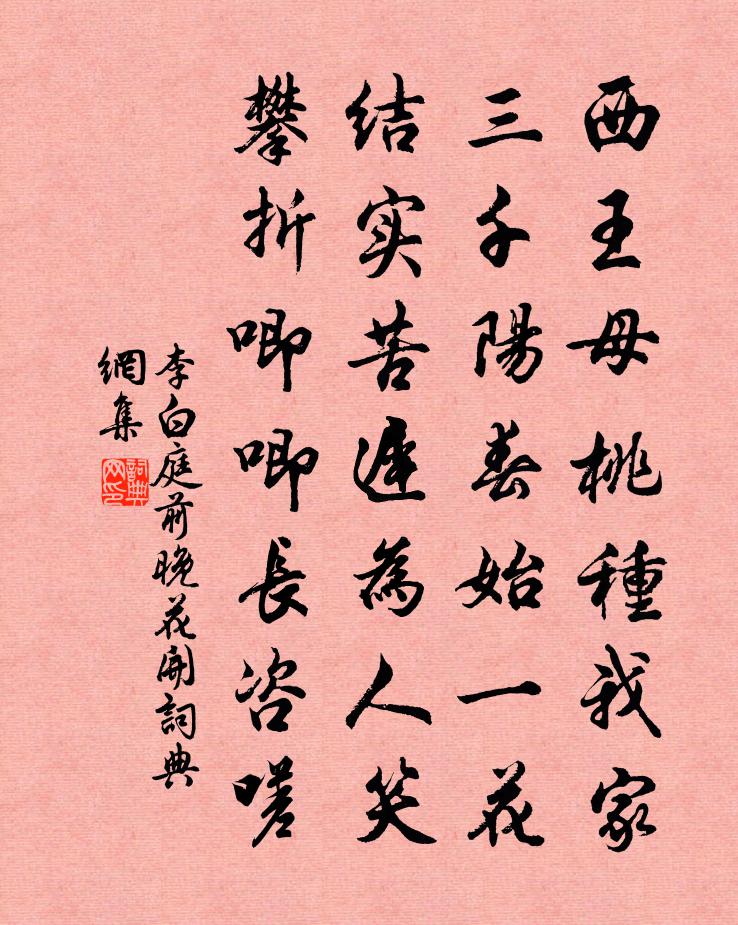 西王母桃種我家
三千陽春始一花
结实苦遲為人笑
攀折唧唧長咨嗟
李白庭前晚花開詞典
網集
詞典
网印